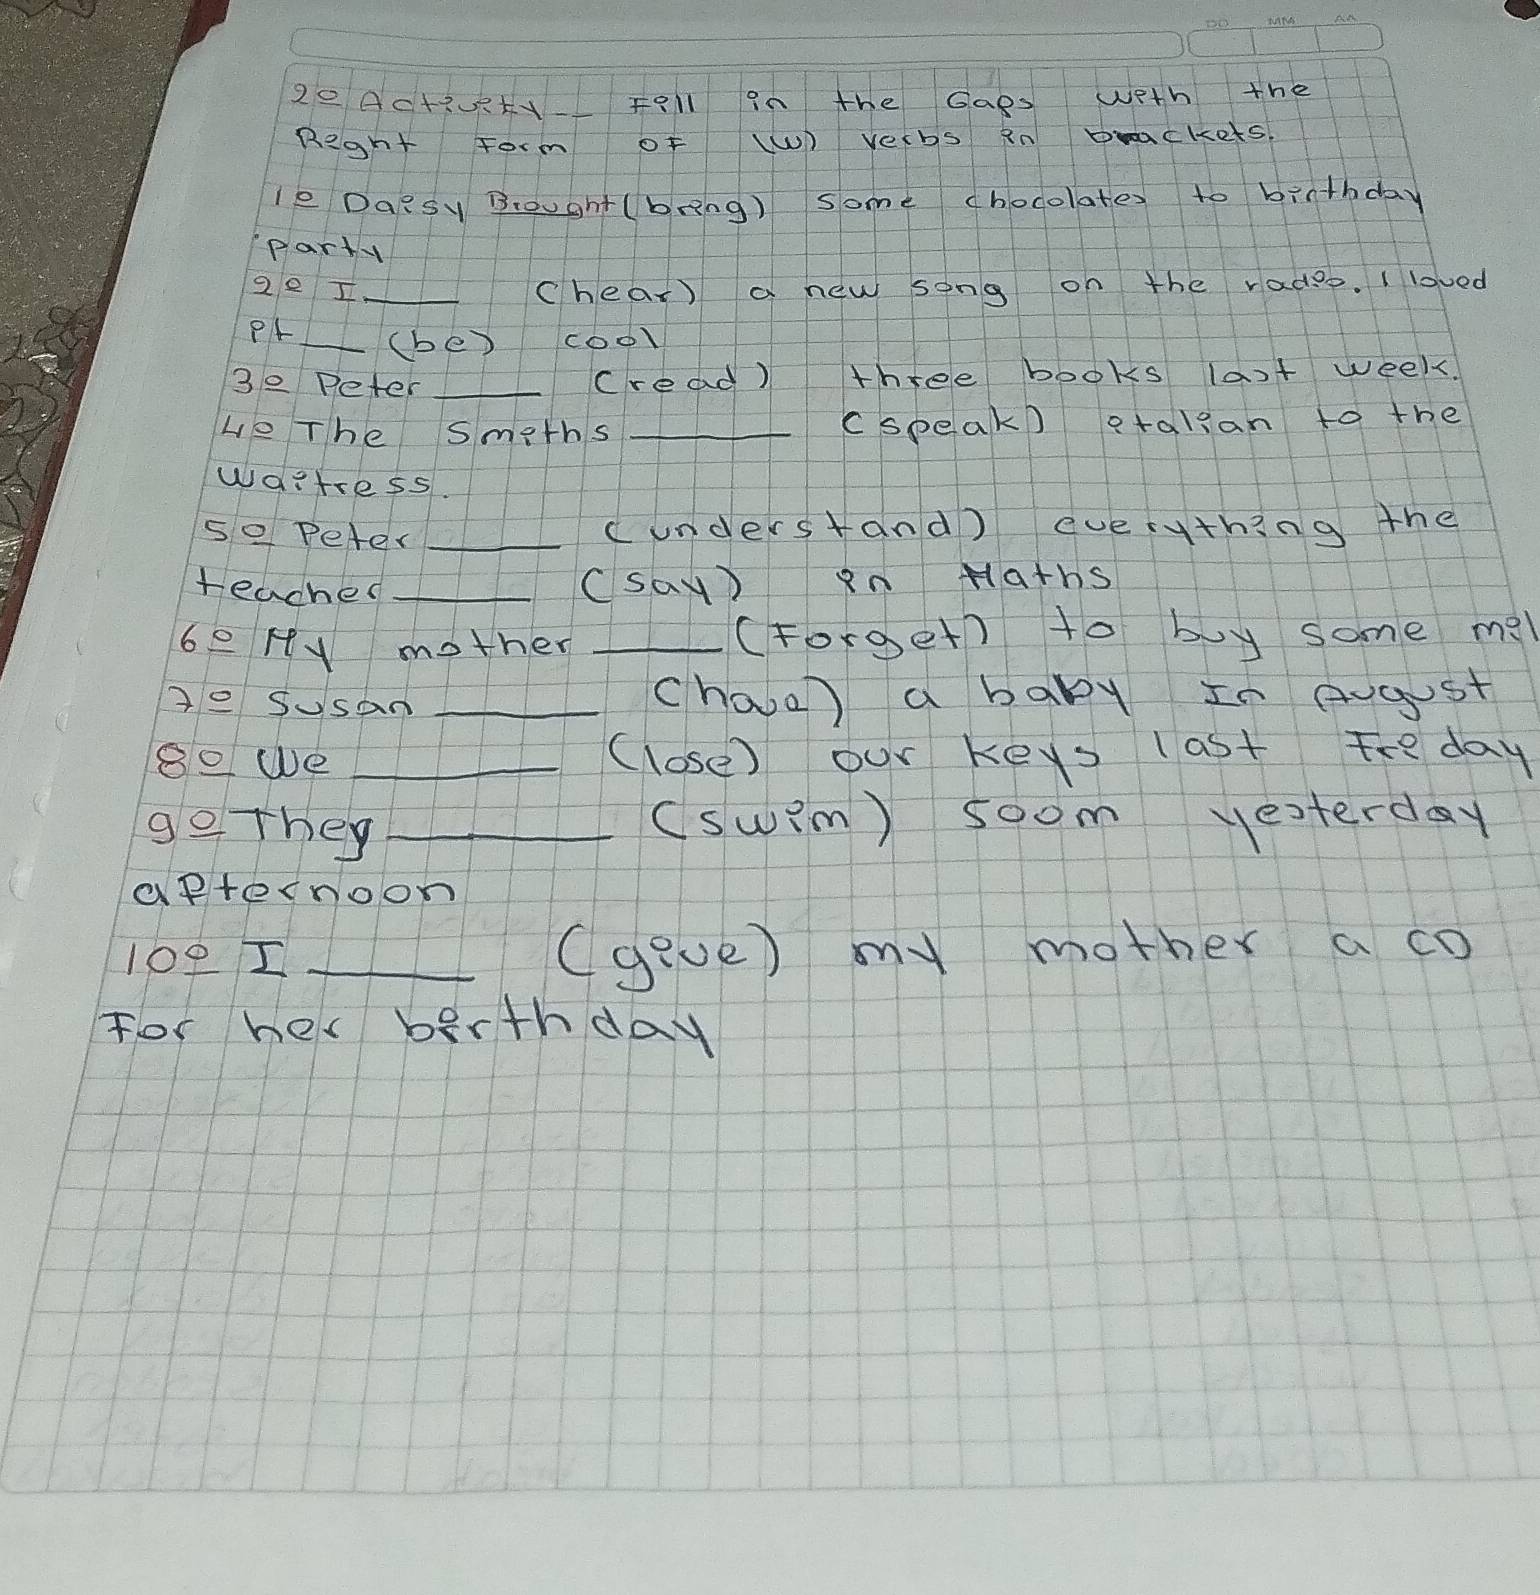 DD MM AA
2º Activity__ Fill in the Gaps with the
Right Form OF (W) verbs in brackets.
1º Daisy Brought (bring) some chocolates to birthday
party
2º I ____ (hear) a new song on the radio. I loved
it ___ (be) cool
3º Peter ____ (read) three books last week.
4º The Smiths ____ (speak) italian to the
waitress.
5º Peter ____ (understand) everything the
teacher ____ (say) in Maths
6º My mother ____ (Forget) to buy some mil
7º Susan ____ (have) a baby In August
8º We ____ (lose) our keys last Friday
9º They ____ (swim) 500m yesterday
afternoon
10º I ____ (give) my mother a CD
For her birthday